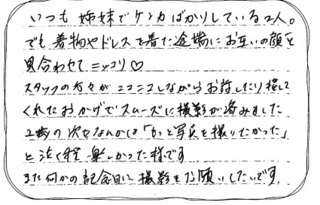 いつも姉妹でケンカばかりしている2人。
でも着物やドレスを着た途端にお互いの顔を
見合わせてニッコリ♡
スタッフの方々がニコニコしながらお話したり接して
くれたおかげでスムーズに撮影が進みました
2歳の次女なんかは「もっと写真を撮りたかった」
と泣く程楽しかった様です
また何かの記念日に撮影をお願いしたいです。